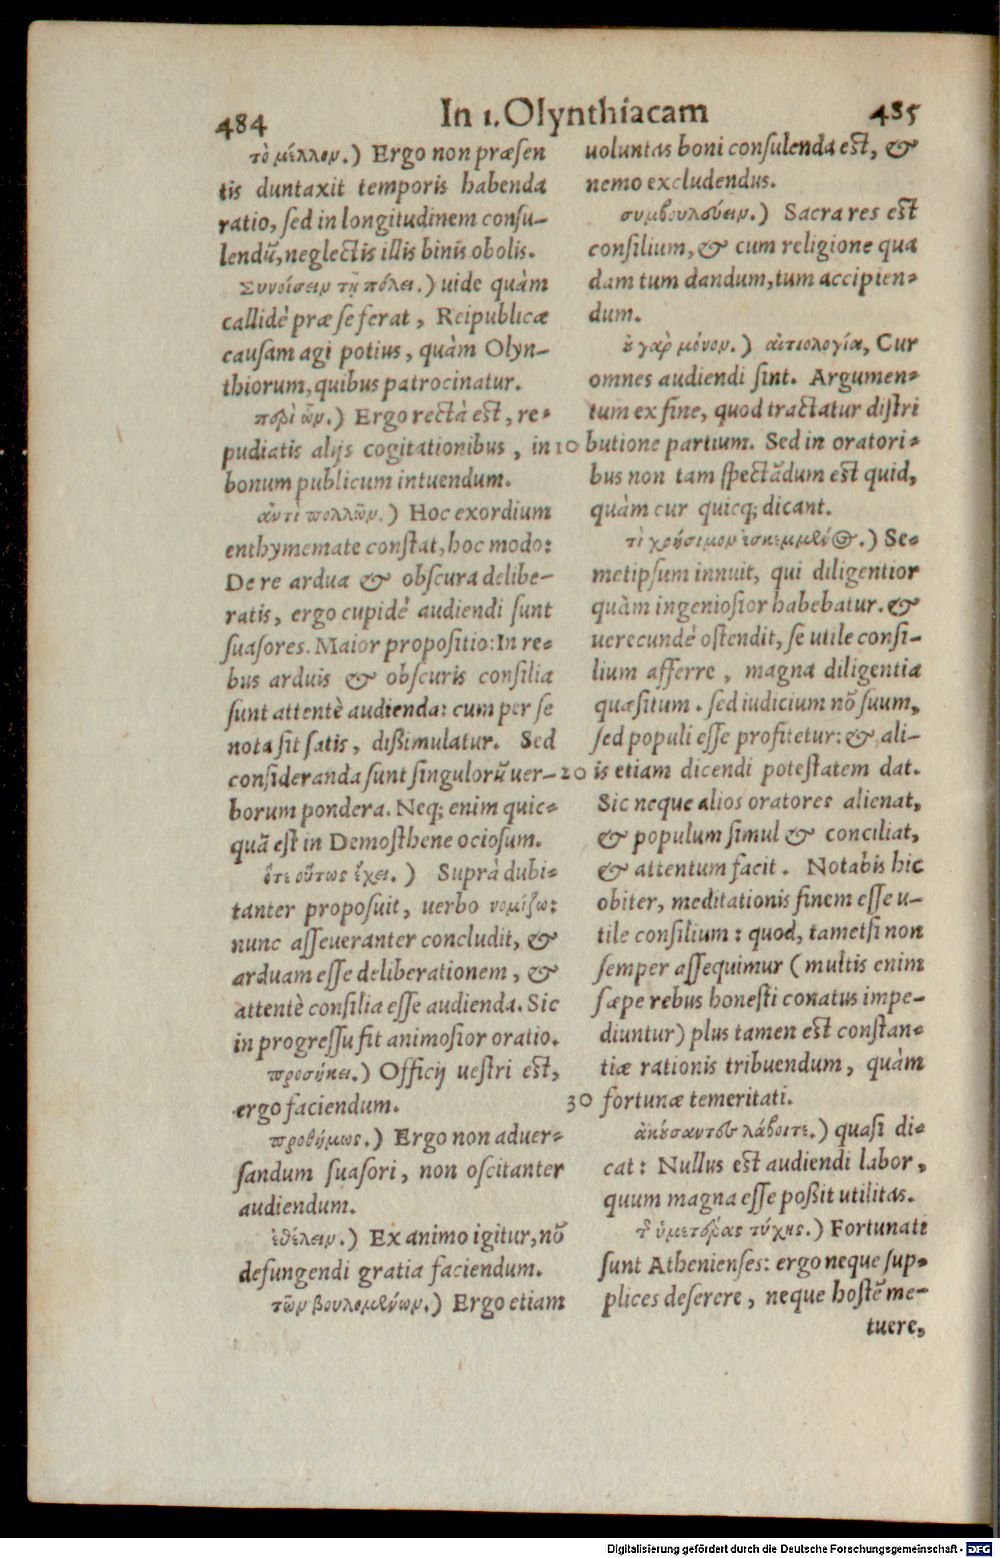 484
In 1. Olynthiacam
485
τὸ μέλλον.) Ergo non præsen
tis duntaxit temporis habenda
ratio, sed in longitudinem consu-
lendū, neglectis illis binis obolis.
Συνοίσειν τῇ πόλει.) uide quàm
callidè præ se ferat, Reipublicæ
causam agi potius, quàm Olyn-
thiorum, quibus patrocinatur.
περὶ ὧν.) Ergo rectà est, re-
pudiatis alijs cogitationibus, in
bonum publicum intuendum.
ἀντὶ πολλῶν.) Hoc exordium
enthymemate constat, hoc modo:
De re ardua & obscura delibe-
ratis, ergo cupidè audiendi sunt
suasores. Maior propositio: In re-
bus arduis & obscuris consilia
sunt attentè audienda: cum per se
nota sit satis, dißimulatur. Sed
consideranda sunt singulorū uer-
borum pondera. Neq; enim quic-
quā est in Demosthene ociosum.
ὅτε οὕτως ἔχει.) Suprà dubi-
tanter proposuit, uerbo νομίζω:
nunc asseueranter concludit, &
arduam esse deliberationem, &
attentè consilia esse audienda. Sic
in progressu fit animosior oratio.
προσήκει.) Officij uestri est,
ergo faciendum.
προθύμως.) Ergo non aduer-
sandum suasori, non oscitanter
audiendum.
ἐθέλειν.) Ex animo igitur, nō
defungendi gratia faciendum.
τῶν βουλομένων.) Ergo etiam
uoluntas boni consulenda est, &
nemo excludendus.
συμβουλεύειν.) Sacra res est
consilium, & cum religione qua
dam tum dandum, tum accipien-
dum.
ȣ γὰρ μόνον.) αἰτιολογία, Cur
omnes audiendi sint. Argumen-
tum ex fine, quod tractatur distri
10 butione partium. Sed in oratori-
bus non tam spectādum est quid,
quàm cur quicq; dicant.
τὶ χρήσιμον ἐσκεμμένος.) Se-
metipsum innuit, qui diligentior
quàm ingeniosior habebatur. &
uerecundè ostendit, se utile consi-
lium afferre, magna diligentia
quæsitum. sed iudicium nō suum,
sed populi esse profitetur: & ali-
20 is etiam dicendi potestatem dat.
Sic neque alios oratores alienat,
& populum simul & conciliat,
& attentum facit. Notabis hic
obiter, meditationis finem esse u-
tile consilium: quod, tametsi non
semper assequimur (multis enim
sæpe rebus honesti conatus impe-
diuntur) plus tamen est constan-
tiæ rationis tribuendum, quàm
30 fortunæ temeritati.
ἀκȣ́σαντες λάβοιτε.) quasi di-
cat: Nullus est audiendi labor,
quum magna esse poßit utilitas.
τ͂ ὑμετέρας τύχης.) Fortunati
sunt Athenienses: ergo neque sup-
plices deserere, neque hostē me-
tuere,
Digitalisierung gefördert durch die Deutsche Forschungsgemeinschaft - DFG